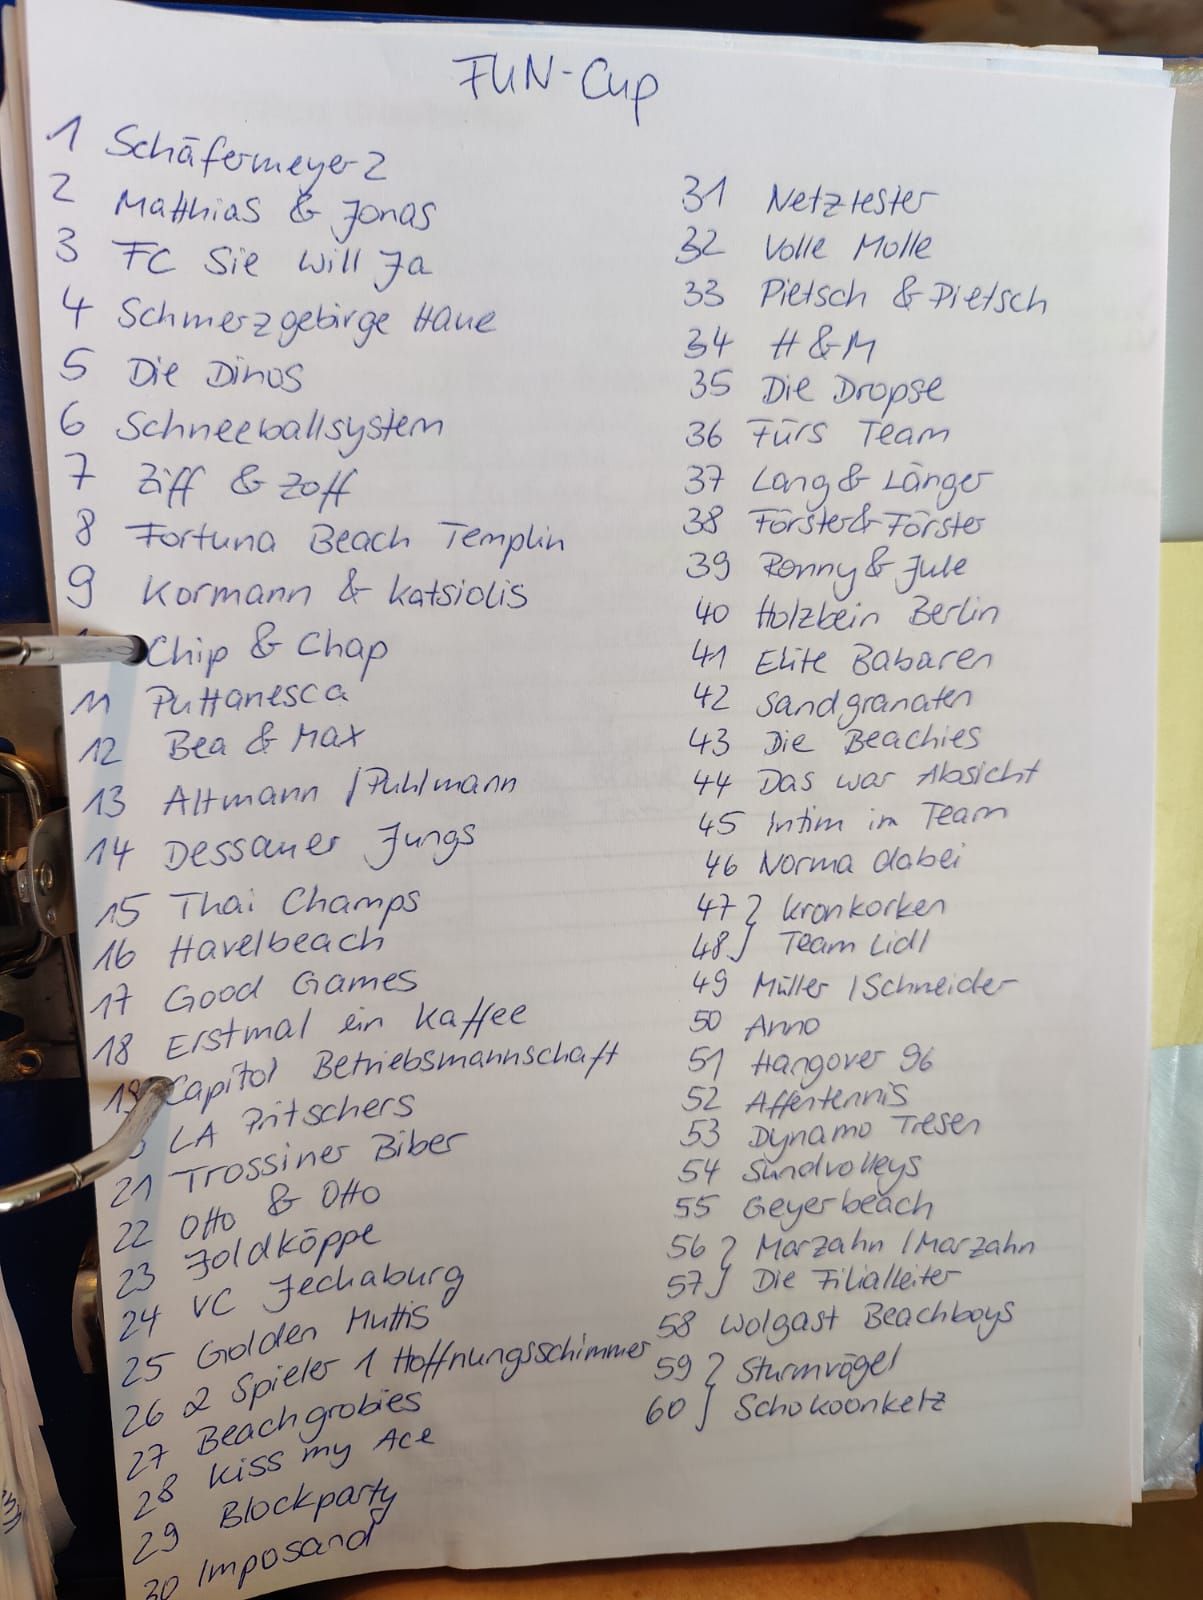 FUN-Cup
1 Schäfermeyer 2
2 Matthias & Jonas
3 FC Sie will Ja
4 Schmerzgebirge Haue
5 Die Dinos
6 Schneeballsystem
7 Ziff & Zoff
8 Fortuna Beach Templin
9 Kormann & Katsiolis
Chip & Chap
11 Puttanesca
12 Bea & Max
13 Altmann / Puhlmann
14 Dessauer Jungs
15 Thai Champs
16 Havelbeach
17 Good Games
18 Erstmal ein Kaffee
19 Capitol Betriebsmannschaft
LA Pritschers
21 Trossiner Biber
22 Otto & Otto
23 Joldköppe
24 VC Jechaburg
25 Golden Muttis
26 2 Spieler 1 Hoffnungsschimmer
27 Beachgrobies
28 Kiss my Ace
29 Blockparty
30 Imposand
31 Netztester
32 Volle Molle
33 Pietsch & Pietsch
34 H & M
35 Die Dropse
36 Fürs Team
37 Lang & Länger
38 Förster & Förster
39 Ronny & Jule
40 Holzbein Berlin
41 Elite Babaren
42 Sandgranaten
43 Die Beachies
44 Das war Absicht
45 Intim im Team
46 Norma dabei
47 Kronkorken
48 Team Lidl
49 Müller / Schneider
50 Anno
51 Hangover 96
52 Affentennis
53 Dynamo Tresen
54 Sundvolleys
55 Geyerbeach
56 Marzahn / Marzahn
57 Die Filialleiter
58 Wolgast Beachboys
59 Sturmvögel
60 Schokoonketz